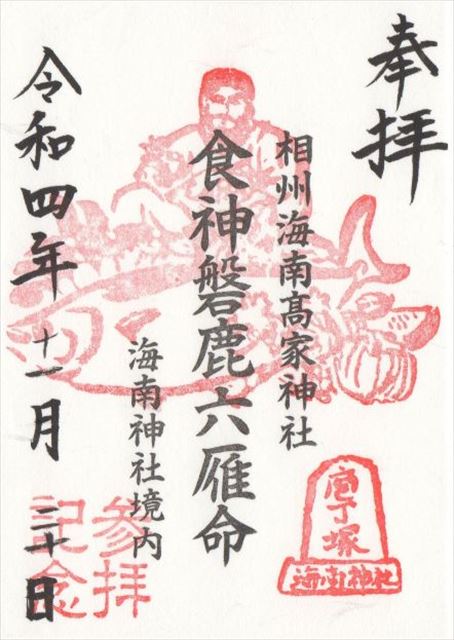 奉拝
相州海南高家神社
食神磐鹿六雁命
海南神社境内
令和四年十一月二十日
参拝
記念
庖丁塚
海南神社